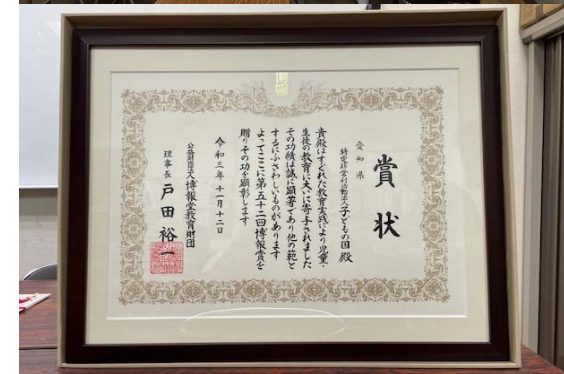 賞状
愛知県
特定非営利活動法人子どもの国殿
貴殿はすぐれた教育実践により児童・
生徒の教育に大いに寄与されました
その功績は誠に顕著であり他の範と
するにふさわしいものがあります
よってここに第五十二回博報賞を
贈りその功を顕彰します
令和三年十一月十二日
公益財団法人博報堂教育財団
理事長戸田裕一